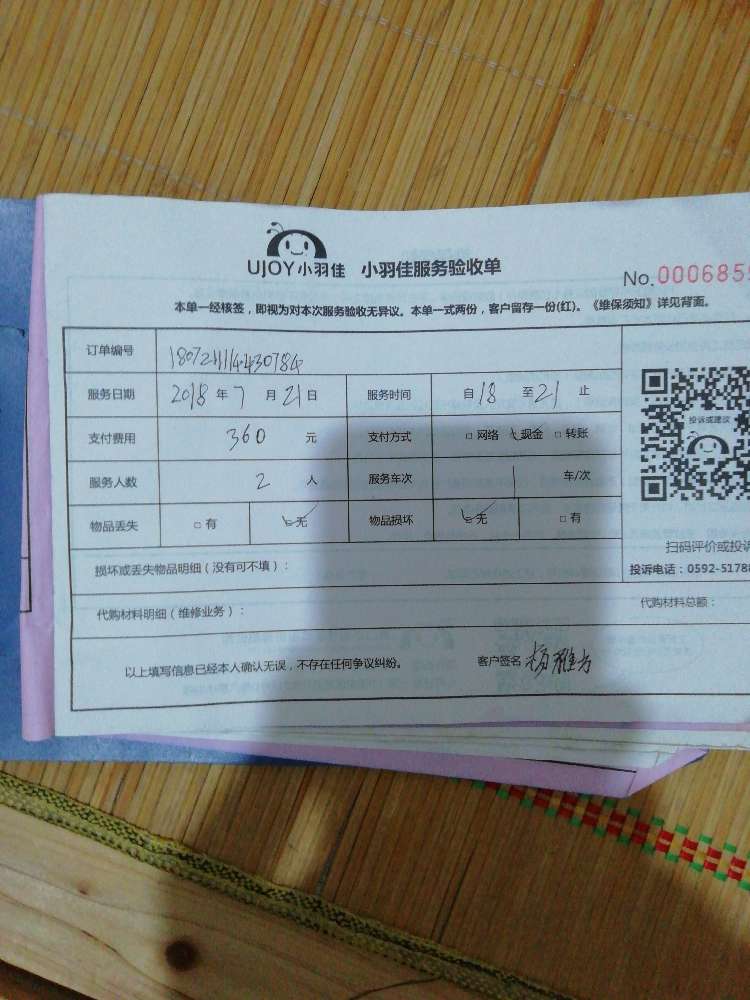 UJOY小羽佳 小羽佳服务验收单
No.000685
本单一经核签，即视为对本次服务验收无异议。本单一式两份，客户留存一份(红)。《维保须知》详见背面。
订单编号
服务日期 2018年7月21日 服务时间 自18至21止
支付费用 360元 支付方式 □网络 现金 □转账
服务人数 2人 服务车次 1车/次
物品丢失 □有 ☑无 物品损坏 ☑无 □有
投诉或建议
扫码评价或投诉
投诉电话：0592-5178
损坏或丢失物品明细（没有可不填）：
代购材料明细（维修业务）： 代购材料总额：
以上填写信息已经本人确认无误，不存在任何争议纠纷。 客户签名 杨雅方